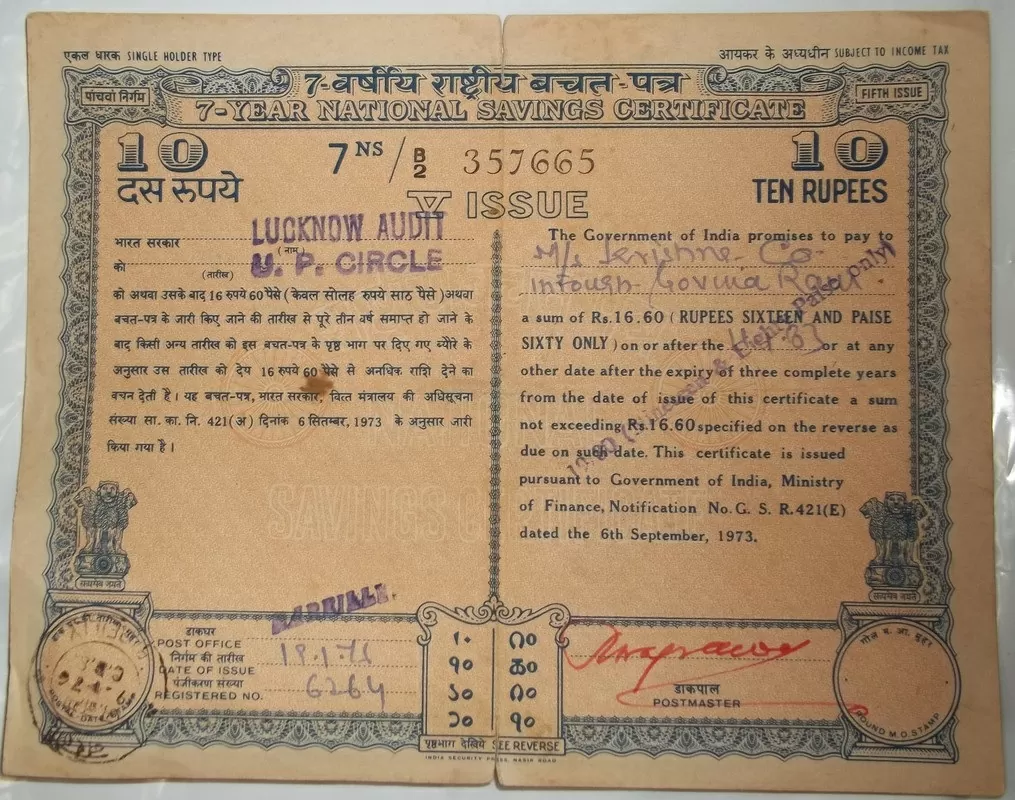 एकल धारक SINGLE HOLDER TYPE
आयकर के अध्यधीन SUBJECT TO INCOME TAX
पांचवां निर्गम
7-वर्षीय राष्ट्रीय बचत-पत्र
FIFTH ISSUE
7-YEAR NATIONAL SAVINGS CERTIFICATE
10
दस रुपये
7 NS / B/2 357665
10
TEN RUPEES
V ISSUE
LUCKNOW AUDIT
U. P. CIRCLE
भारत सरकार
(नाम)
को
(तारीख)
को अथवा उसके बाद 16 रुपये 60 पैसे (केवल सोलह रुपये साठ पैसे) अथवा
बचत-पत्र के जारी किए जाने की तारीख से पूरे तीन वर्ष समाप्त हो जाने के
बाद किसी अन्य तारीख को इस बचत-पत्र के पृष्ठ भाग पर दिए गए ब्योरे के
अनुसार उस तारीख को देय 16 रुपये 60 पैसे से अनधिक राशि देने का
वचन देती है। यह बचत-पत्र, भारत सरकार, वित्त मंत्रालय की अधिसूचना
संख्या सा. का. नि. 421 (अ) दिनांक 6 सितम्बर, 1973 के अनुसार जारी
किया गया है।
The Government of India promises to pay to
M/s Krishna Co
Govind
a sum of Rs.16.60 (RUPEES SIXTEEN AND PAISE
SIXTY ONLY) on or after the or at any
other date after the expiry of three complete years
from the date of issue of this certificate a sum
not exceeding Rs.16.60 specified on the reverse as
due on such date. This certificate is issued
pursuant to Government of India, Ministry
of Finance, Notification No. G. S. R. 421(E)
dated the 6th September, 1973.
Paisa only)
SAVINGS CERTIFICATE
सत्यमेव जयते
सत्यमेव जयते
डाकघर
POST OFFICE
निर्गम की तारीख
DATE OF ISSUE
19.1.76
पंजीकरण संख्या
REGISTERED NO.
6264
डाकपाल
POSTMASTER
गोल म. आ. मुहर
ROUND M.O. STAMP
पृष्ठभाग देखिये SEE REVERSE
INDIA SECURITY PRESS, NASIK ROAD